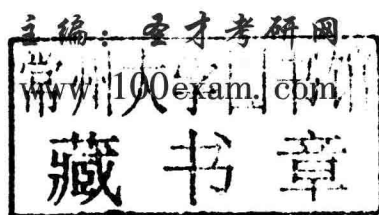 主编：圣才考研网
www.100exam.com
常州大学图书馆
藏书章